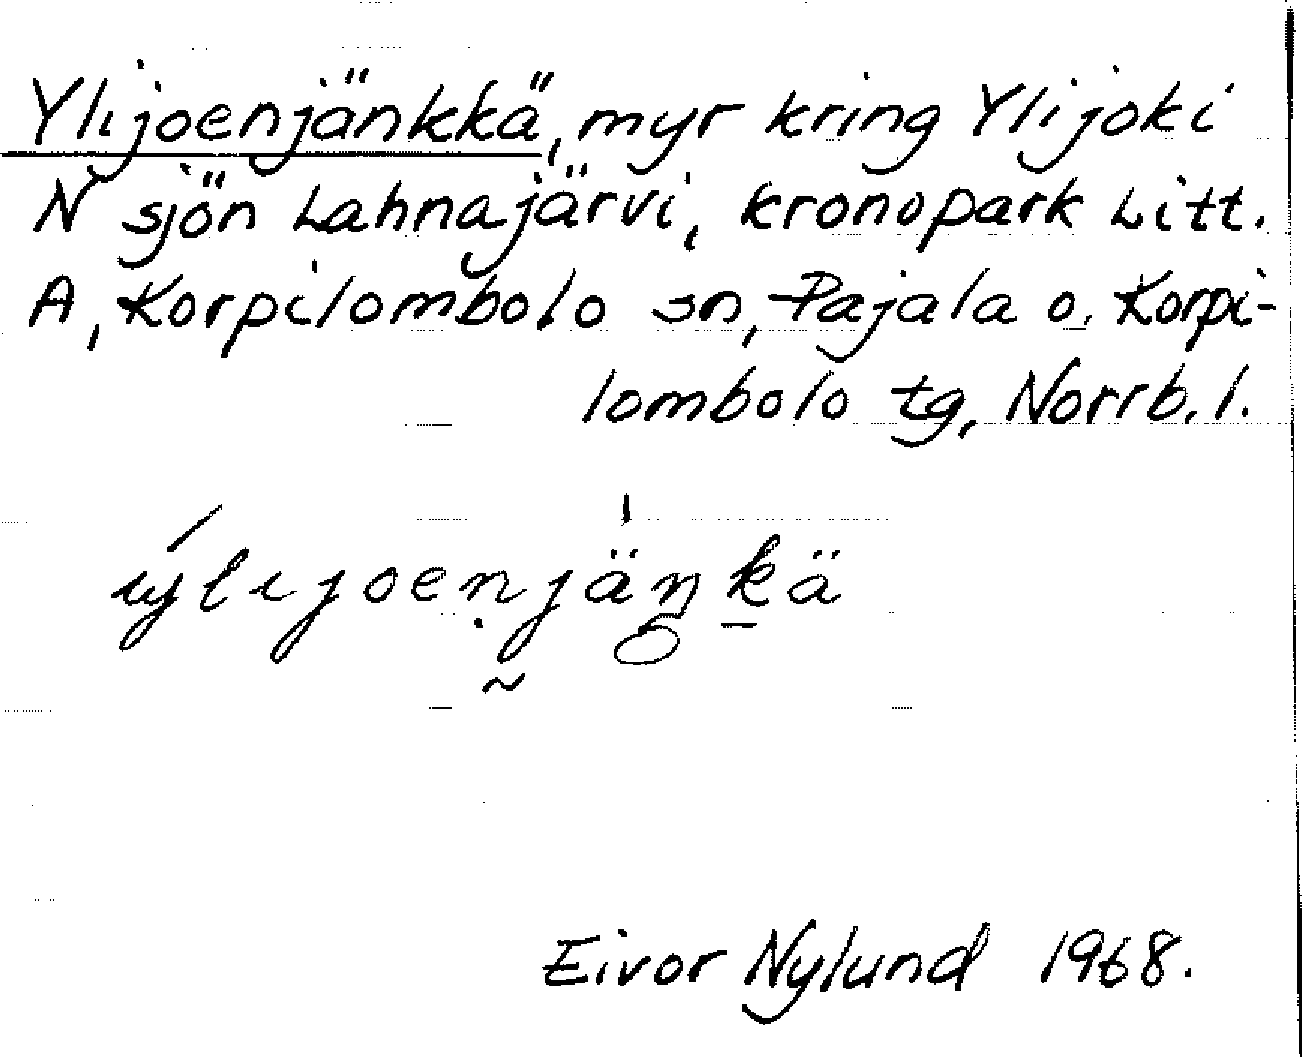 Ylijoenjänkkä, myr kring Ylijoki
N sjön Lahnajärvi, kronopark Litt.
A, Korpilombolo sn, Pajala o. Korpi-
lombolo tg, Norrb. l.
ýlijoenjäŋkä
Eivor Nylund 1968.